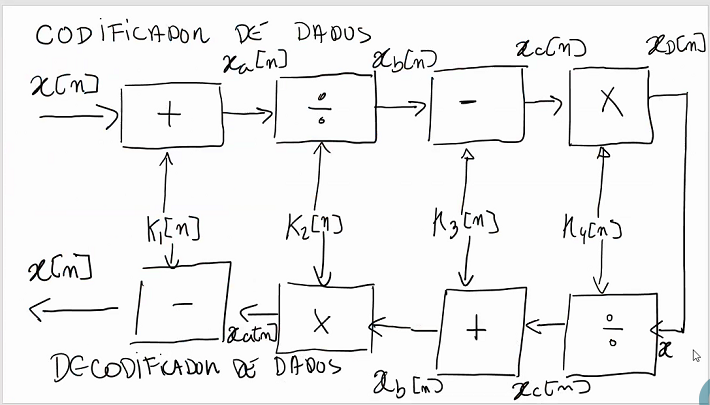 CODIFICADOR DE DADOS
x[n] xa[n] xb[n] xc[n] xD[n]
+ ÷ - X
K1[n] K2[n] K3[n] K4[n]
x[n]
- X + ÷
xa[n] x
DECODIFICADOR DE DADOS xb[n] xc[n]